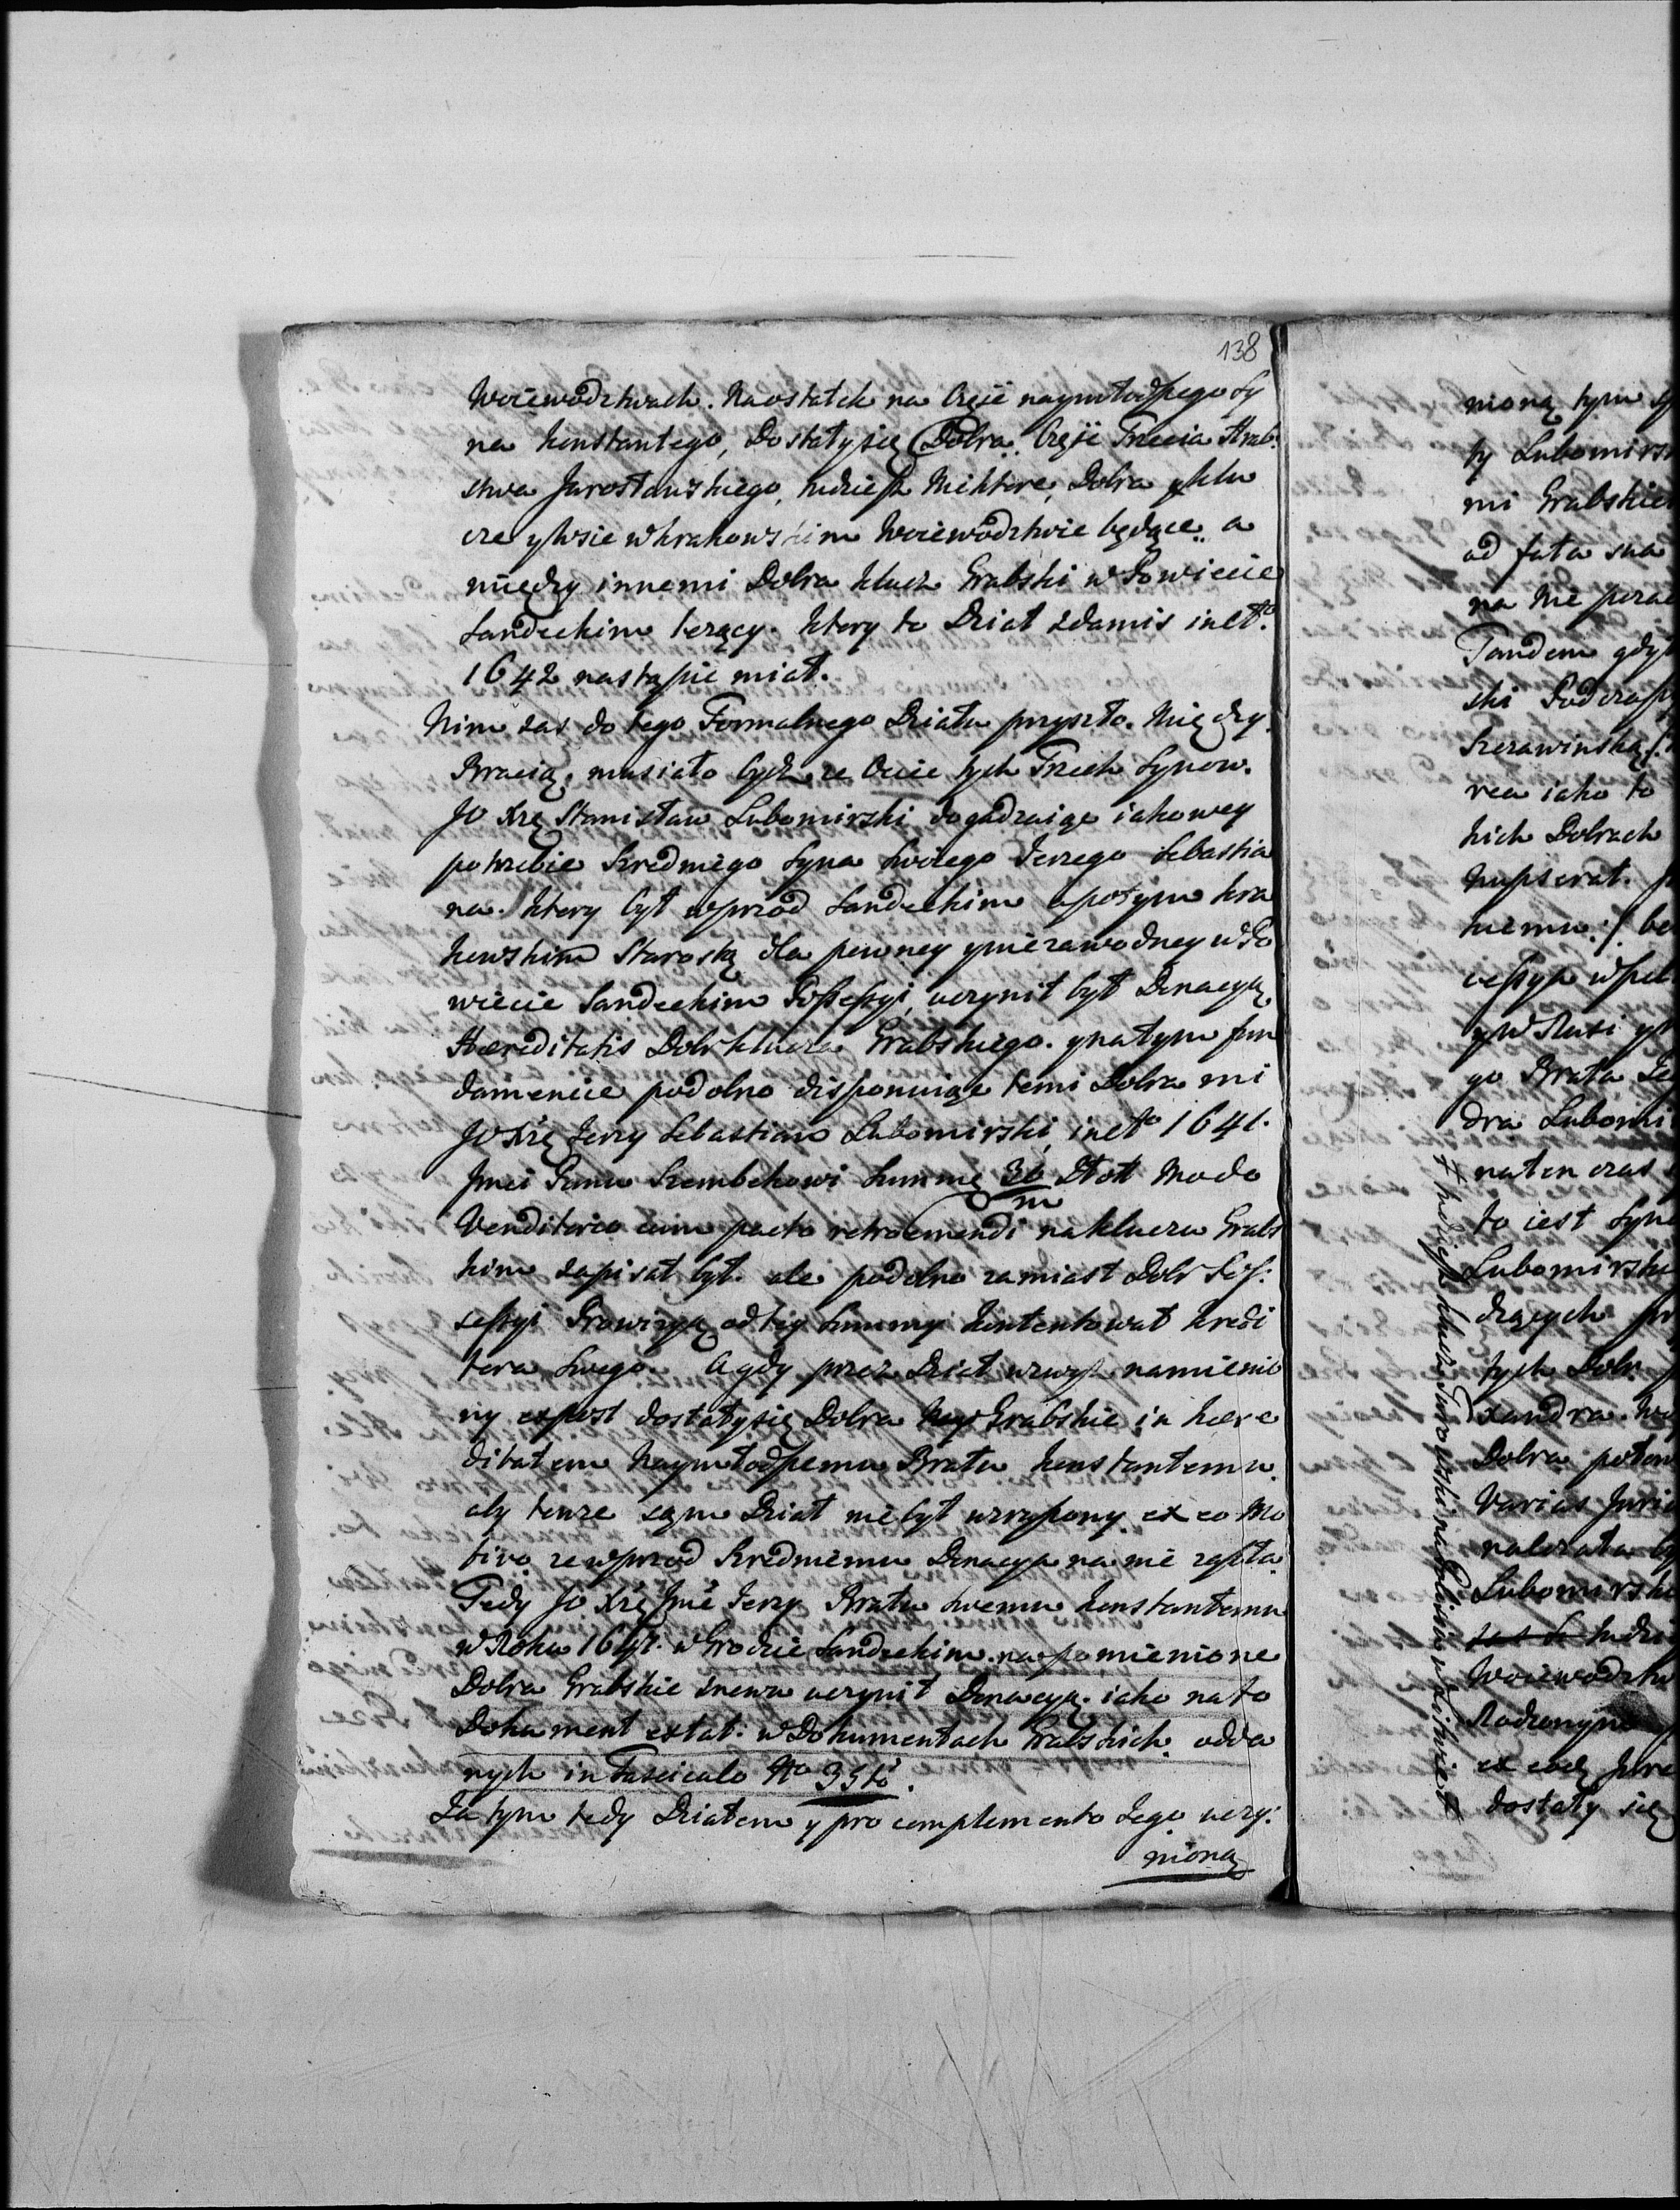 138
Woiewodztwach. Naostatek na Część naymłodszego Sy
na Konstantego, Dostały się Dobra. Część Trzecia Hrab:
stwa Jarosławskiego, tudziesz Niktore, Dobra y klu
cze y Wsie w krakowskim Woiewodztwie będące. a
między innemi Dobra klucz Grabski w Powiecie
Sandeckim lezący. ktory to Dział zdamis in ct.o
1642 nastąpic miał.
Nim zas do tego Formalnego Działu przyszło. Między
Bracią. musiało bydz, ze Ociec tych Trzech Synow.
JO Xżę Stanisław Lubomirski dogadzaiąc iakowey
potrzebie Szredniego Syna Swoiego Jerzego Sebastia
na. ktory był wprzod Sandeckim a potym kra
kowskim Starostą dla pewney y niezawodney w Po
wiecie Sandeckim Possessyi, uczynił był Donacyą,
Hæreditatis Dobr klucza Grabskiego. y na tym fun
damencie podobno disponuiąc temi Dobra mi
JO Xżę Jerzy Sebastian Lubomirski in cto 1641.
Jmci Panu Szembekowi Summę 36/m Złott Modo
Venditorio cum pacto retroemendi na kluczu Grabs
kim zapisał był. ale podobno zamiast Dobr Pos:
sessyi Prowizyą od tey Summy kontentował kredi
tora Swego. A gdy przez Dział wzwyż namienio
ny expost dostały się Dobra Grabskie in hære
ditatem Naymłodszemu Bratu Konstantemu.
aby tenze sam Dział nie był wzruszony ex eo Mo
tivo ze wprzod Szredniemu Donacya na nie zaszła.
Tedy JO Xżę Jmć Jerzy Bratu swemu Konstantemu
w Roku 1647. w Grodzie Sandeckim. na pomienione
Dobra Grabskie znowu uczynił Donacyą. iako na to
Dokument extat: w Dokumentach Grabskich. odda
nych in Fasciculo No 35to.
Za tym tedy Działem y pro complemento Jego uczy:
nioną
nioną tym
ty Lubomirs
mi Grabskie
od fata sua
na Nie
Tandem gdy
ski Podczas
Szczawinską
rea iako to
kich Dobrach
Nupserat.
kiemu
cessya w
y W Rusi y
go Brata Je
dra Lubomi
naten czas
to iest Syn
Lubomirski
dzących
tych Dobr
xandra.
Dobra potem
Varias Juri
nalezała
Lubomirski
tudzi
Woiewodztw
Rodzonym
ex eadem
dostały się